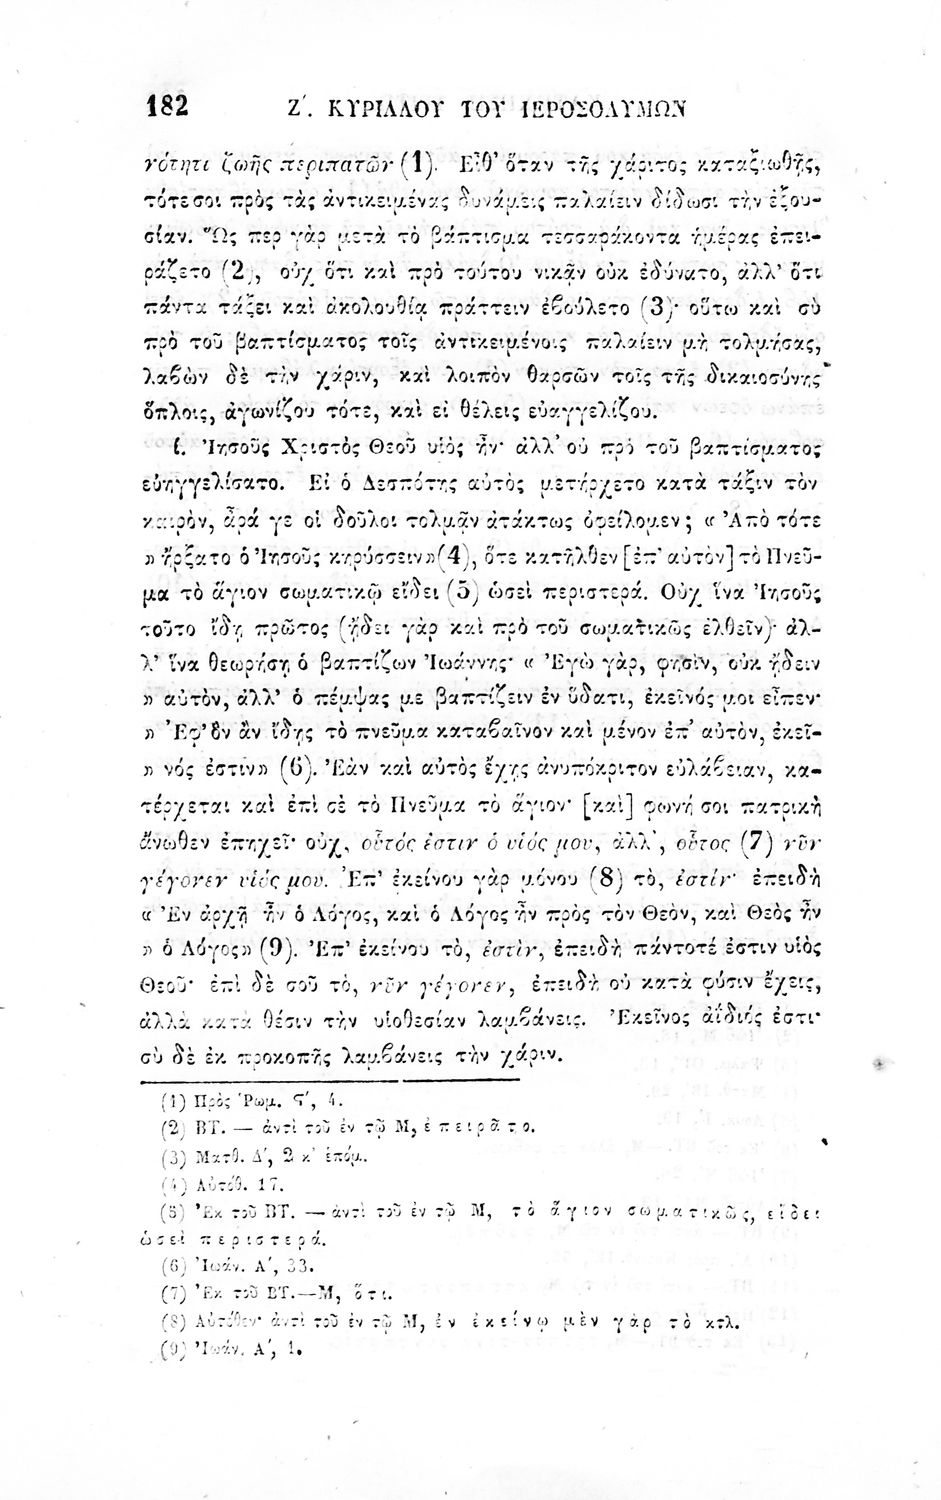 182 Ζ΄. ΚΥΡΙΛΛΟΥ ΤΟΥ ΙΕΡΟΣΟΛΥΜΩΝ
νότητι ζωῆς περιπατῶν (1). Εἶθ’ ὅταν τῆς χάριτος καταξιωθῇς,
τότεσοι πρὸς τὰς ἀντικειμένας δυνάμεις παλαίειν δίδωσι τὴν ἐξου-
σίαν. Ὥς περ γὰρ μετὰ τὸ βάπτισμα τεσσαράκοντα ἡμέρας ἐπει-
ράζετο (2), οὐχ ὅτι καὶ πρὸ τούτου νικᾷν οὐκ ἐδύνατο, ἀλλ’ ὅτι
πάντα τάξει καὶ ἀκολουθίᾳ πράττειν ἐβούλετο (3)· οὕτω καὶ σὺ
πρὸ τοῦ βαπτίσματος τοῖς ἀντικειμένοις παλαίειν μὴ τολμήσας,
λαβὼν δὲ τὴν χάριν, καὶ λοιπὸν θαρσῶν τοῖς τῆς δικαιοσύνης
ὅπλοις, ἀγωνίζου τότε, καὶ εἰ θέλεις εὐαγγελίζου.
ί. Ἰησοῦς Χριστὸς Θεοῦ υἱὸς ἦν· ἀλλ’ οὐ πρὸ τοῦ βαπτίσματος
εὐηγγελίσατο. Εἰ ὁ Δεσπότης αὐτὸς μετήρχετο κατὰ τάξιν τὸν
καιρὸν, ἆρά γε οἱ δοῦλοι τολμᾷν ἀτάκτως ὀφείλομεν; « Ἀπὸ τότε
» ἤρξατο ὁ Ἰησοῦς κηρύσσειν»(4), ὅτε κατῆλθεν [ἐπ’ αὐτὸν] τὸ Πνεῦ-
μα τὸ ἅγιον σωματικῷ εἴδει (5) ὡσεὶ περιστερά. Οὐχ ἵνα Ἰησοῦς
τοῦτο ἴδῃ πρῶτος (ᾔδει γὰρ καὶ πρὸ τοῦ σωματικῶς ἐλθεῖν)· ἀλ-
λ’ ἵνα θεωρήσῃ ὁ βαπτίζων Ἰωάννης· « Ἐγὼ γὰρ, φησὶν, οὐκ ᾔδειν
» αὐτὸν, ἀλλ’ ὁ πέμψας με βαπτίζειν ἐν ὕδατι, ἐκεῖνός μοι εἶπεν·
» Ἐφ’ ὃν ἂν ἴδῃς τὸ πνεῦμα καταβαῖνον καὶ μένον ἐπ’ αὐτὸν, ἐκεῖ-
» νός ἐστιν» (6). Ἐὰν καὶ αὐτὸς ἔχῃς ἀνυπόκριτον εὐλάβειαν, κα-
τέρχεται καὶ ἐπὶ σὲ τὸ Πνεῦμα τὸ ἅγιον· [καὶ] φωνή σοι πατρικὴ
ἄνωθεν ἐπηχεῖ· οὐχ, οὗτός ἐστιν ὁ υἱός μου, ἀλλ’, οὗτος (7) νῦν
γέγονεν υἱός μου. Ἐπ’ ἐκείνου γὰρ μόνου (8) τὸ, ἐστίν· ἐπειδὴ
« Ἐν ἀρχῇ ἦν ὁ Λόγος, καὶ ὁ Λόγος ἦν πρὸς τὸν Θεὸν, καὶ Θεὸς ἦν
» ὁ Λόγος» (9). Ἐπ’ ἐκείνου τὸ, ἐστὶν, ἐπειδὴ πάντοτέ ἐστιν υἱὸς
Θεοῦ· ἐπὶ δὲ σοῦ τὸ, νῦν γέγονεν, ἐπειδὴ οὐ κατὰ φύσιν ἔχεις,
ἀλλὰ κατὰ θέσιν τὴν υἱοθεσίαν λαμβάνεις. Ἐκεῖνος ἀΐδιός ἐστι·
σὺ δὲ ἐκ προκοπῆς λαμβάνεις τὴν χάριν.
(1) Πρὸς Ῥωμ. Ϛ΄, 4.
(2) ΒΤ. — ἀντὶ τοῦ ἐν τῷ Μ, ἐπειρᾶτο.
(3) Ματθ. Δ΄, 2 κ’ ἑπόμ.
(4) Αὐτόθ. 17.
(5) Ἐκ τοῦ ΒΤ. — ἀντὶ τοῦ ἐν τῷ Μ, τὸ ἅγιον σωματικῶς, εἴδει
ὡσεὶ περιστερά.
(6) Ἰωάν. Α΄, 33.
(7) Ἐκ τοῦ ΒΤ.—Μ, ὅτι.
(8) Αὐτόθεν· ἀντὶ τοῦ ἐν τῷ Μ, ἐν ἐκείνῳ μὲν γὰρ τὸ κτλ.
(9) Ἰωάν. Α΄, 1.